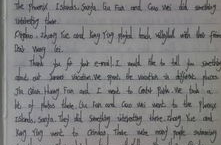 The phoenix Islands, Sanya. Liu Fan and Cao Wei did something
interesting there.
Zhang Yue and Jiang Ying played beach volleyball with their friend
Wang Lei.
Thank you for your e-mail. I would like to tell you something
about our summer vacation. We spent the vacation in different places.
Jin Chen, Huang Fan and I went to Park. We took a
lot of photos there. Liu Fan and Cao Wei went to the phoenix
Islands, Sanya. They did something interesting there. Zhang Yue and
Jiang Ying went to There were many people swimming